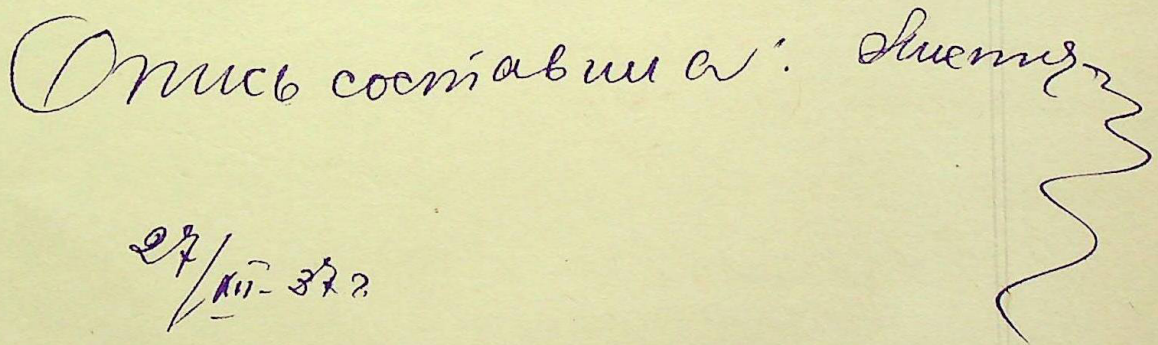 Опись составила:
27/XII-37 г.